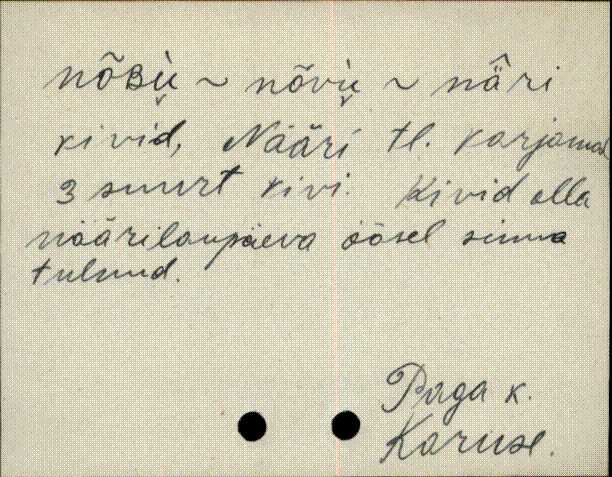 nõʙi̮i̬ ~ nõvi̬i ~ nä̂ri
kivid, Nääri tl. karjamaa
3 suurt kivi. Kivid olla
näärilaupäeva öösel sinna
tulnud.
Paga k.
Karuse.